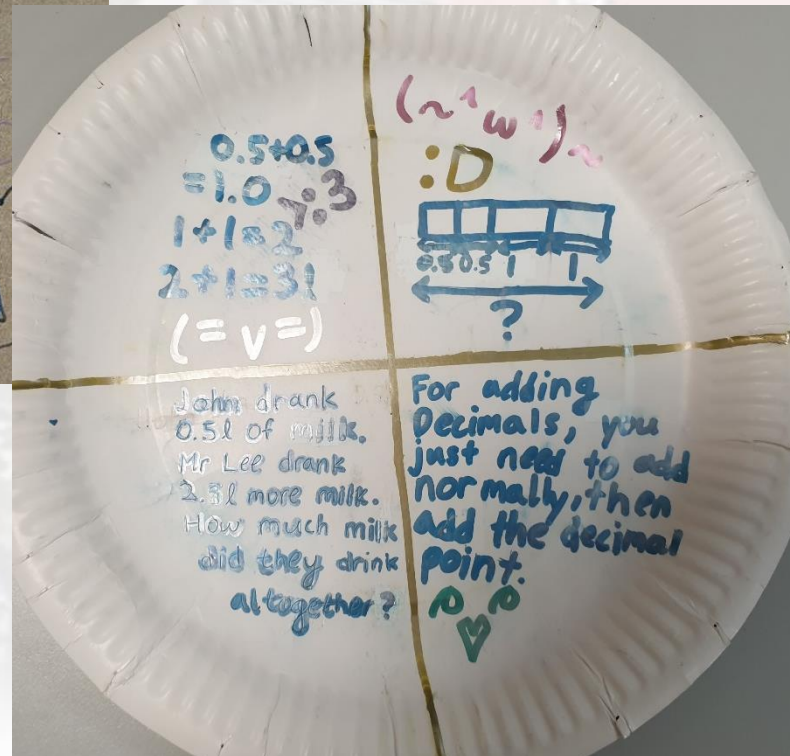 0.5+0.5
=1.0
:3
1+1=2
2+1=3l
(=v=)
(~^w^)~
:D
0.5 0.5 1 1
?
John drank
0.5l of milk.
Mr Lee drank
2.5l more milk.
How much milk
did they drink
altogether?
For adding
Decimals, you
just need to add
normally, then
add the decimal
point.